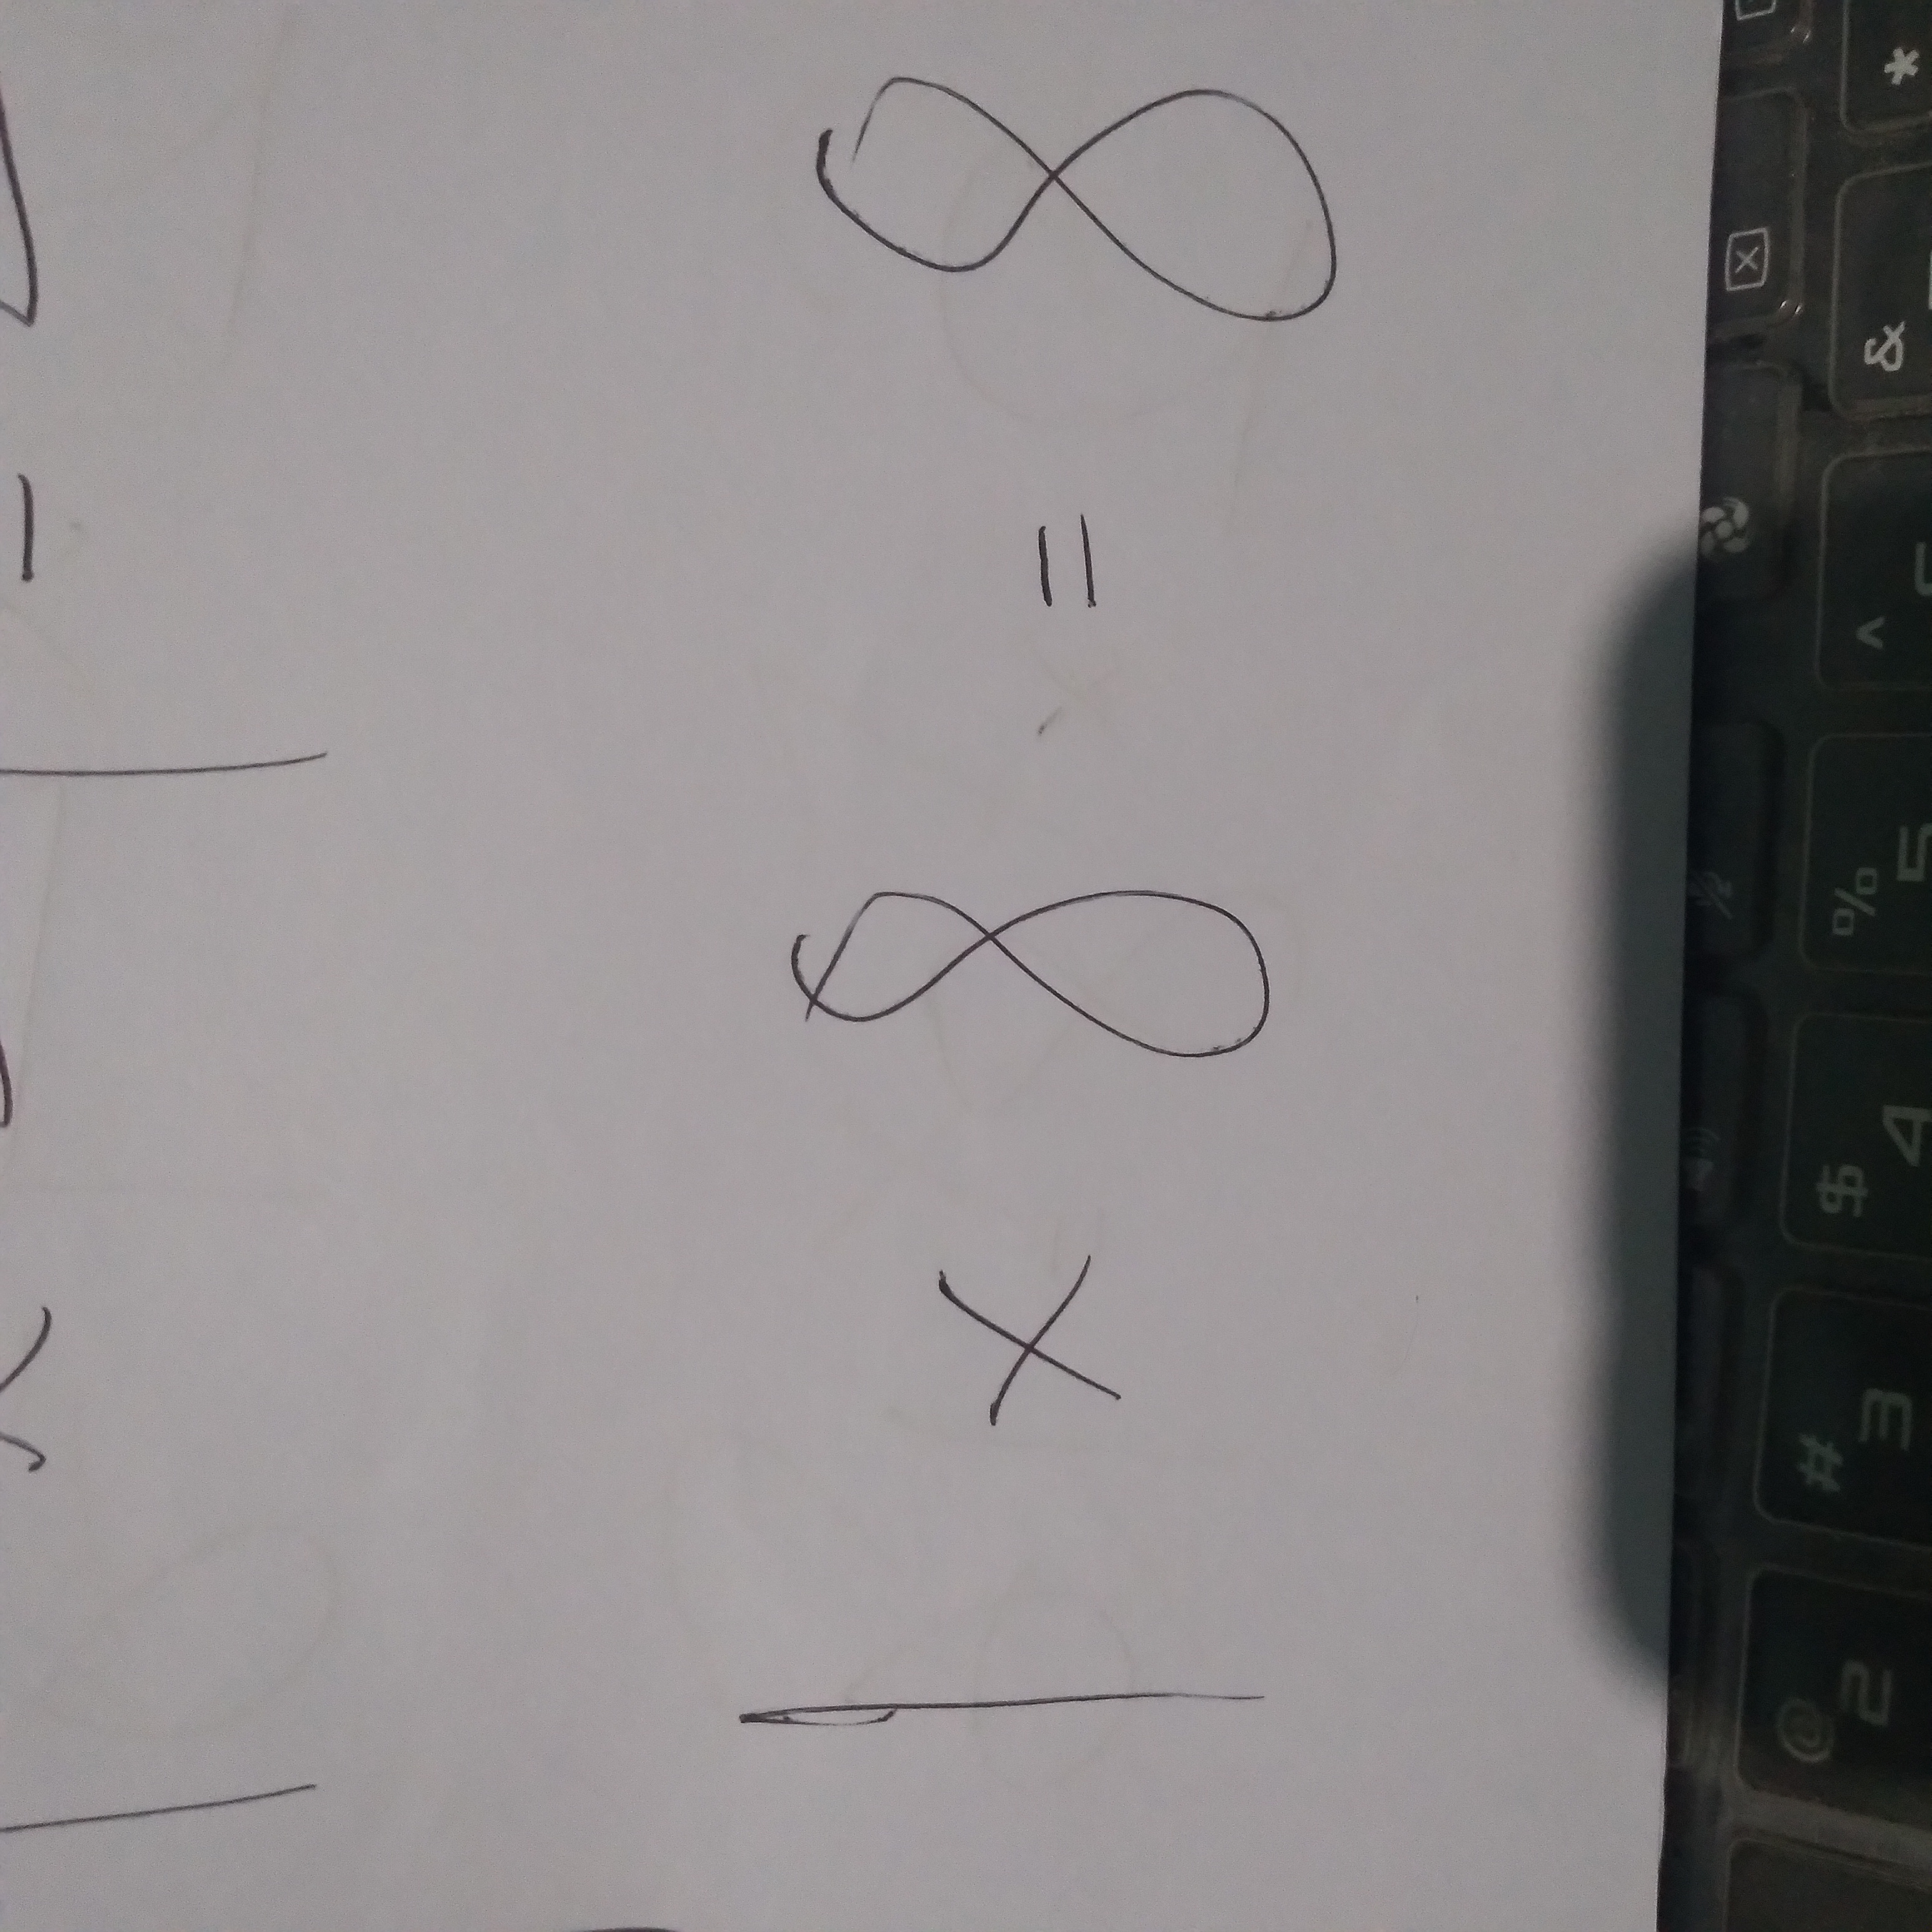 1 × 8 = 8
@ # $ % ^ & *
2 3 4 5